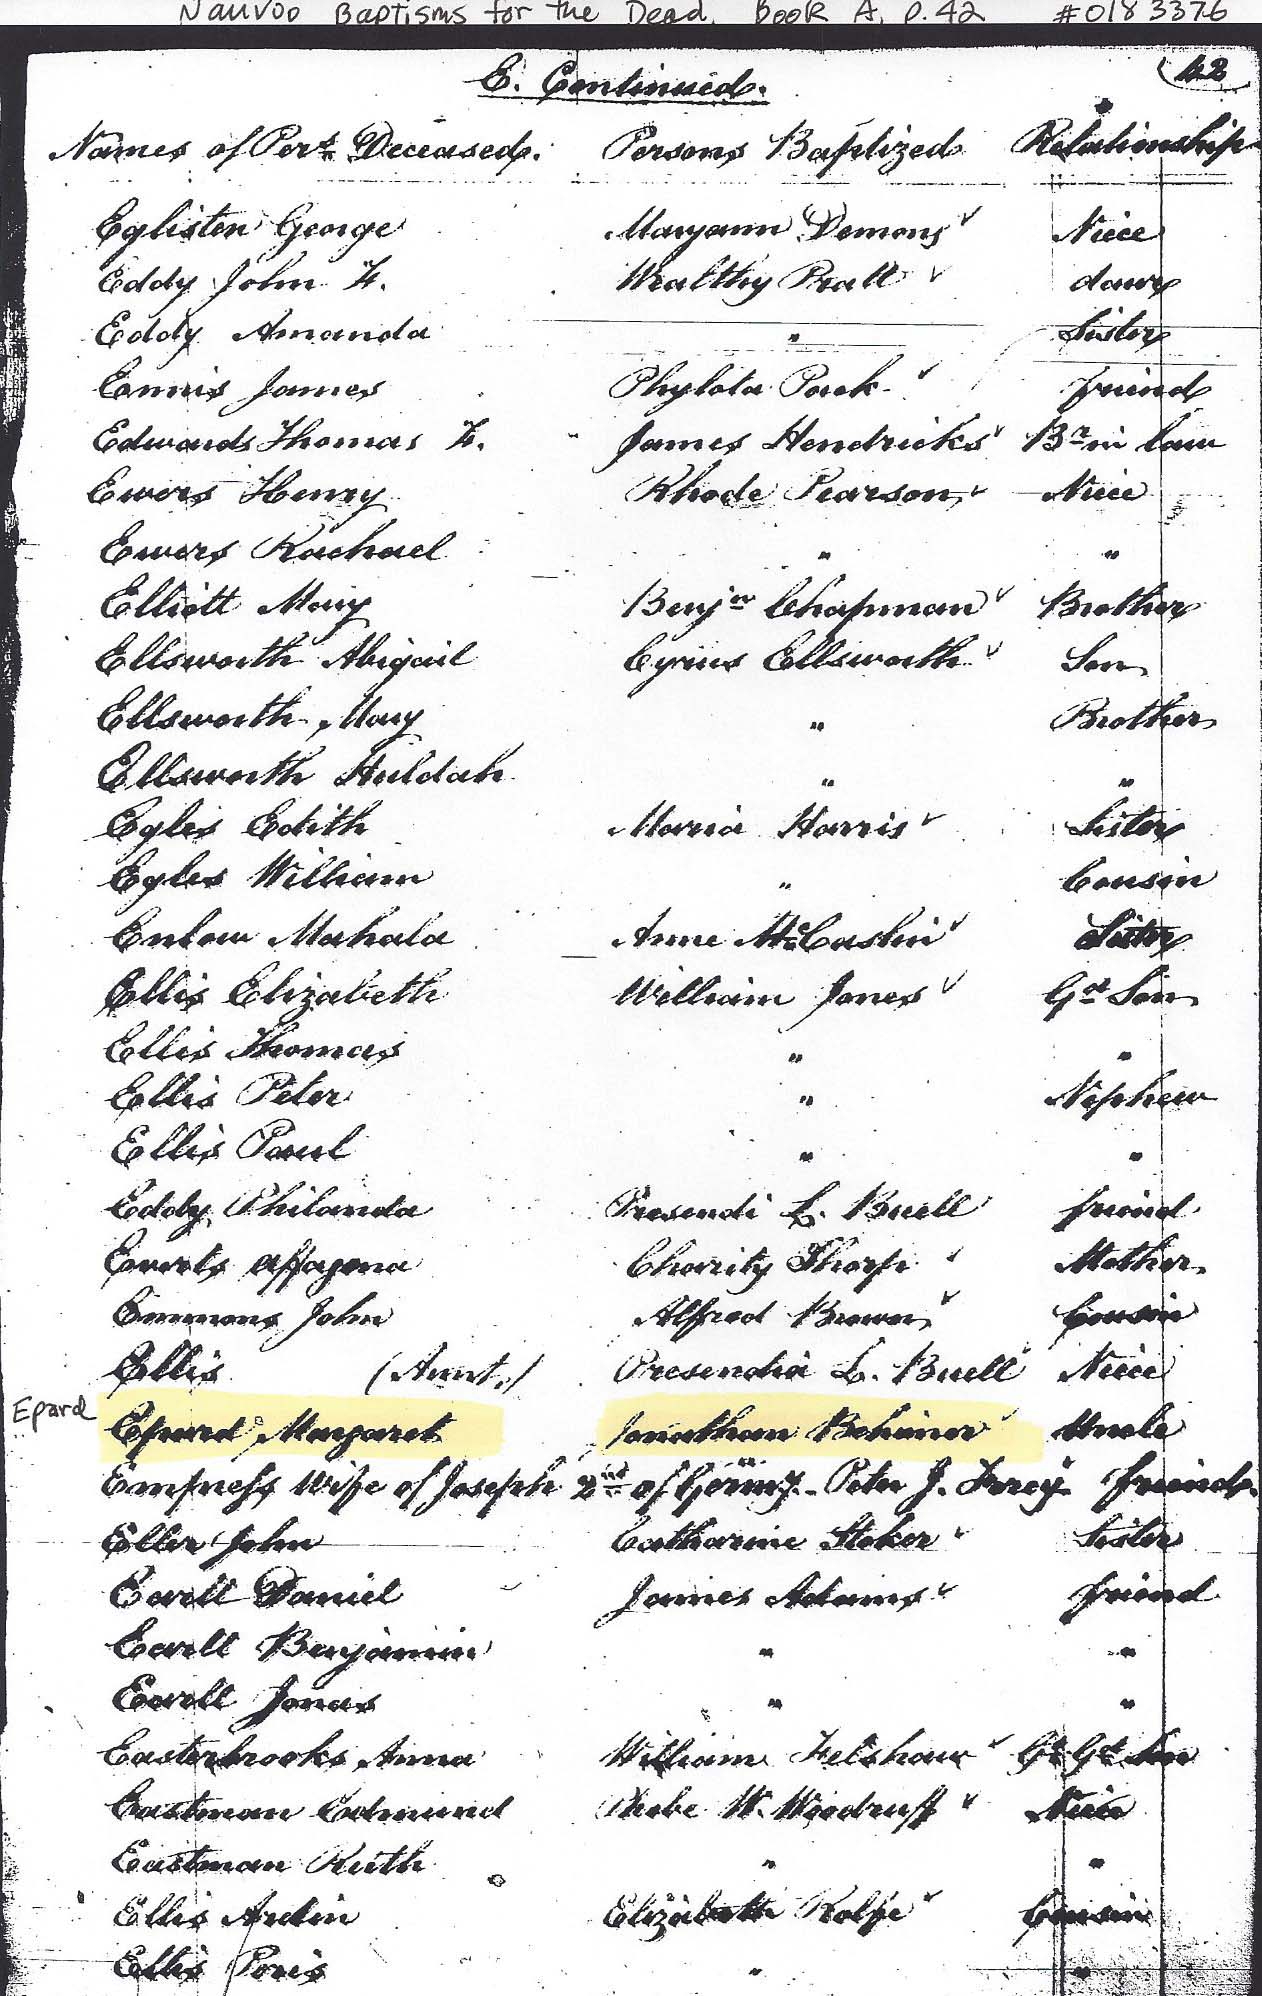 Nauvoo Baptisms for the Dead, Book A, p. 42 #0183376
42
E. Continued.
Names of Pers. Deceased. Persons Baptized Relationship
Eglisten George Maryann Demons Niece
Eddy John F. Wealthy Pratt daur
Eddy Amanda " Sister
Ennis James Phylota Pack friend
Edwards Thomas F. James Hendricks Br in law
Ewers Henry Rhode Pearson Niece
Ewers Rachael " "
Elliott Mary Benjn Chapman Brother
Ellsworth Abigail Cyrus Ellsworth Son
Ellsworth Mary " Brother
Ellsworth Huldah " "
Egles Edith Maria Harris Sister
Egles William " Cousin
Enlow Mahala Anne McCaslin Sister
Ellis Elizabeth William Jones Gd Son
Ellis Thomas " "
Ellis Peter " Nephew
Ellis Paul " "
Eddy Philanda Presendi L. Buell friend
Everts Charity Thorp Mother
Emmons John Alfred Brown Cousin
Ellis (Aunt.) Presendia L. Buell Niece
Epard Epard Margaret Jonathan Behimer Uncle
Empress Wife of Joseph 2nd of Peter J. friend
Eller John Catharine Stoker Sister
Ewell Daniel James Adams friend
Ewell Benjamin " "
Ewell Jonas " "
Easterbrooks Anna William Felshaw Gt Gd Son
Eastman Edmund Phebe W. Woodruff Niece
Eastman Ruth " "
Ellis Elizabeth Rolfe Cousin
Ellis " "